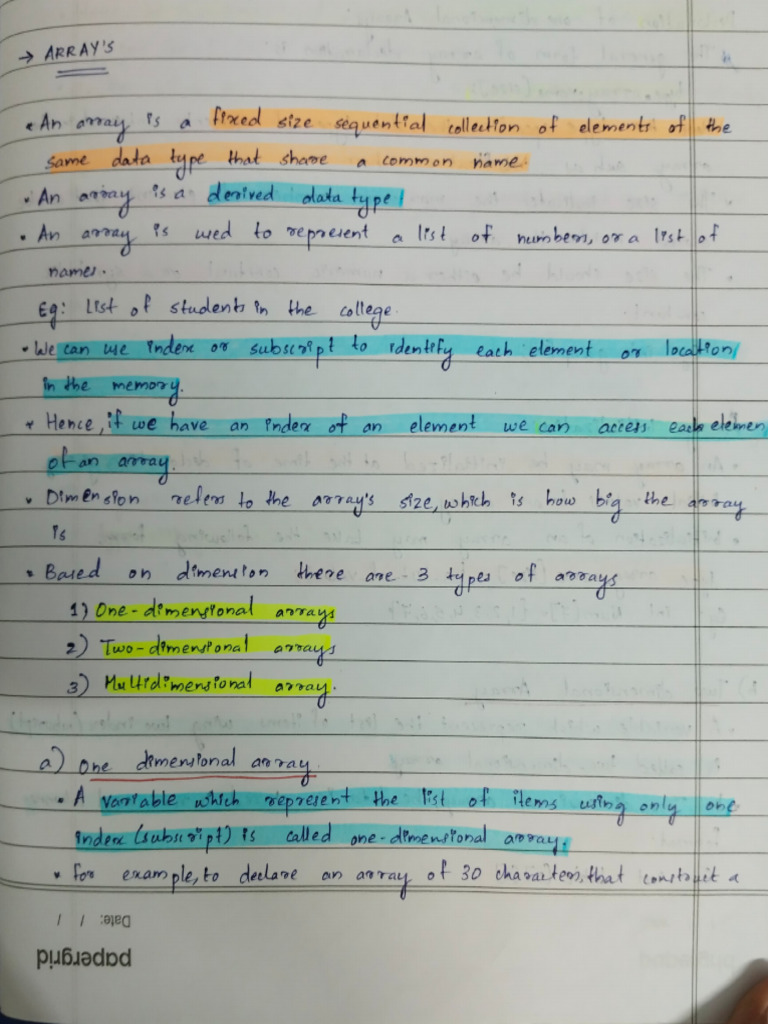 → ARRAY'S
• An array is a fixed size sequential collection of elements of the
same data type that share a common name.
• An array is a derived data type
• An array is used to represent a list of numbers, or a list of
names.
Eg: List of students in the college.
• We can use index or subscript to identify each element or location
in the memory.
• Hence, if we have an index of an element we can access each elemen
of an array.
• Dimension refers to the array's size, which is how big the array
is
• Based on dimension there are 3 types of arrays
1) One-dimensional arrays
2) Two-dimensional arrays
3) Multidimensional array.
a) One dimensional array.
• A variable which represent the list of items using only one
index (subscript) is called one-dimensional array.
• For example, to declare an array of 30 characters, that construct a
Date: / /
papergrid